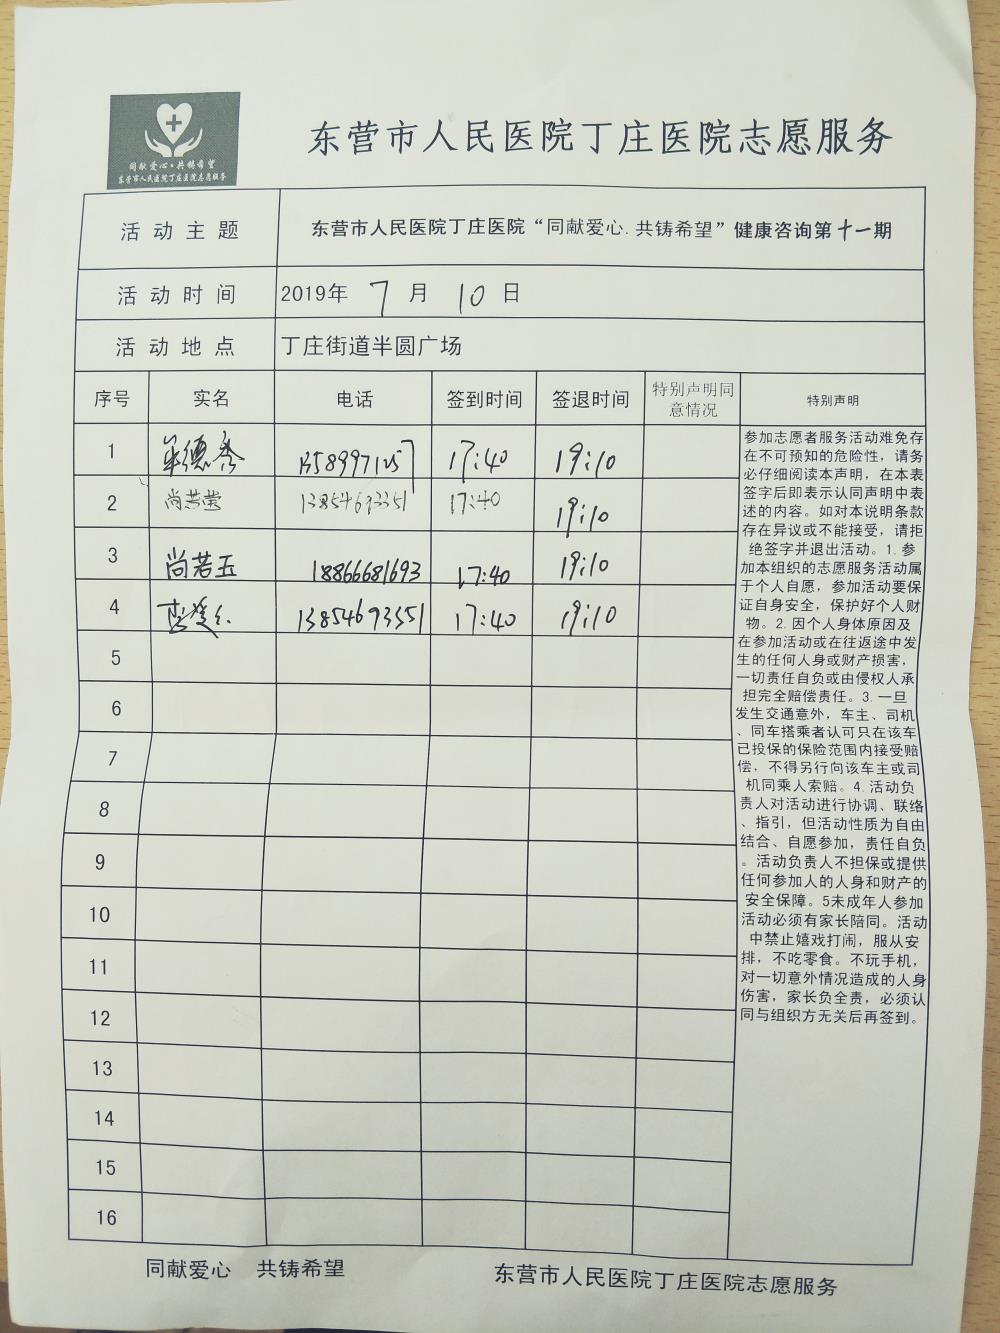 同献爱心·共铸希望
东营市人民医院丁庄医院志愿服务
东营市人民医院丁庄医院志愿服务
活动主题 东营市人民医院丁庄医院“同献爱心.共铸希望”健康咨询第十一期
活动时间 2019年 7 月 10 日
活动地点 丁庄街道半圆广场
序号 实名 电话 签到时间 签退时间 特别声明同意情况 特别声明
1 17:40 19:10
2 尚若莹 13854693351 17:40 19:10
3 尚若玉 18866681693 17:40 19:10
4 13854693351 17:40 19:10
5
6
7
8
9
10
11
12
13
14
15
16
参加志愿者服务活动难免存
在不可预知的危险性，请务
必仔细阅读本声明，在本表
签字后即表示认同声明中表
述的内容。如对本说明条款
存在异议或不能接受，请拒
绝签字并退出活动。1.参
加本组织的志愿服务活动属
于个人自愿，参加活动要保
证自身安全，保护好个人财
物。2.因个人身体原因及
在参加活动或在往返途中发
生的任何人身或财产损害，
一切责任自负或由侵权人承
担完全赔偿责任。3.一旦
发生交通意外，车主、司机
、同车搭乘者认可只在该车
已投保的保险范围内接受赔
偿，不得另行向该车主或司
机同乘人索赔。4.活动负
责人对活动进行协调、联络
、指引，但活动性质为自由
结合、自愿参加，责任自负
。活动负责人不担保或提供
任何参加人的人身和财产的
安全保障。5未成年人参加
活动必须有家长陪同。活动
中禁止嬉戏打闹，服从安
排，不吃零食。不玩手机，
对一切意外情况造成的人身
伤害，家长负全责，必须认
同与组织方无关后再签到。
同献爱心 共铸希望 东营市人民医院丁庄医院志愿服务